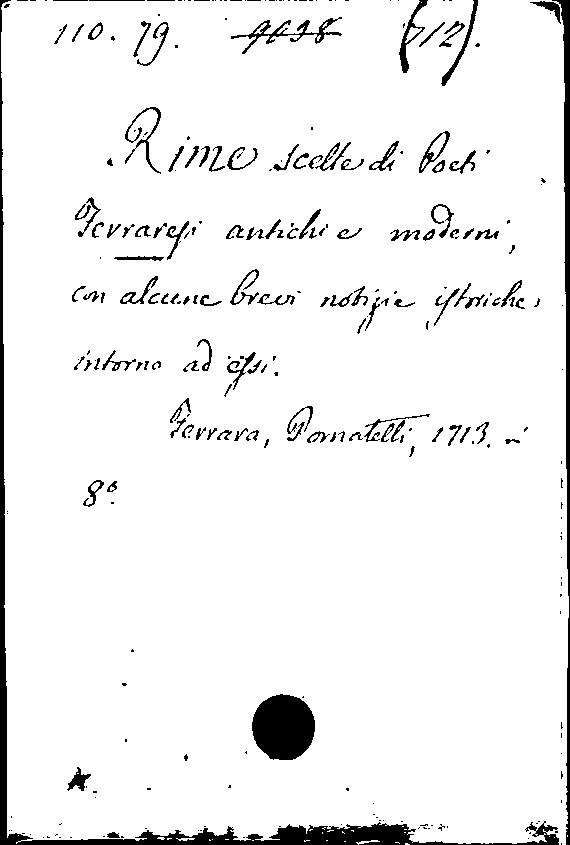 110. 79. 9038 (712).
Rime scelte di Poeti
Ferraresi antichi e moderni,
con alcune brevi notizie istoriche,
intorno ad essi.
Ferrara, Pomatelli, 1713. in
8º.